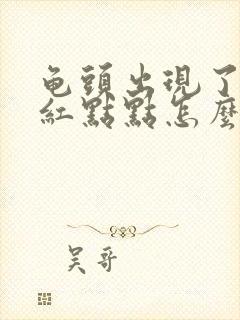 龟頭出現了
紅點點怎麼
吴哥